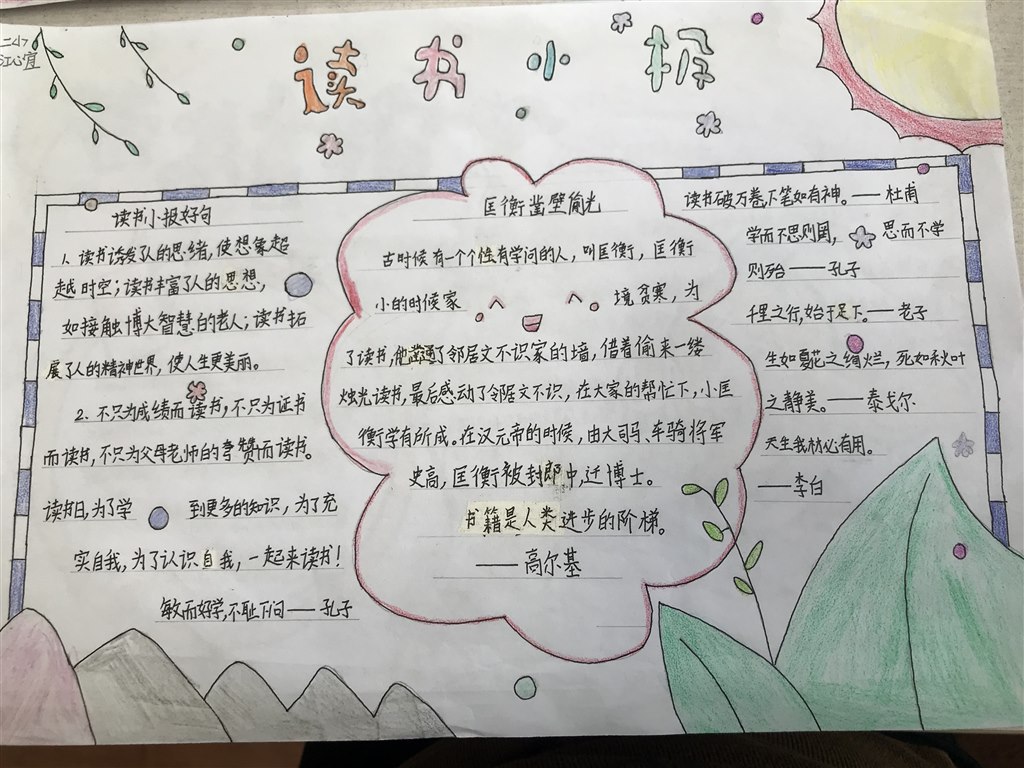 二小
江心宜
读书小报
读书小报好句
1、读书诱发人的思绪，使想象超
越时空；读书丰富了人的思想，
如接触博大智慧的老人；读书拓
展了人的精神世界，使人生更美丽。
2、不只为成绩而读书，不只为证书
而读书，不只为父母老师的夸赞而读书。
读书日，为了学到更多的知识，为了充
实自我，为了认识自我，一起来读书！
敏而好学，不耻下问——孔子
匡衡凿壁偷光
古时候有一个个性有学问的人，叫匡衡，匡衡
小的时候家境贫寒，为
了读书，他凿通了邻居文不识家的墙，借着偷来一缕
烛光读书，最后感动了邻居文不识，在大家的帮忙下，小匡
衡学有所成。在汉元帝的时候，由大司马、车骑将军
史高，匡衡被封郎中，迁博士。
书籍是人类进步的阶梯。
——高尔基
读书破万卷，下笔如有神。——杜甫
学而不思则罔，思而不学
则殆——孔子
千里之行，始于足下。——老子
生如夏花之绚烂，死如秋叶
之静美。——泰戈尔
天生我材必有用。
——李白